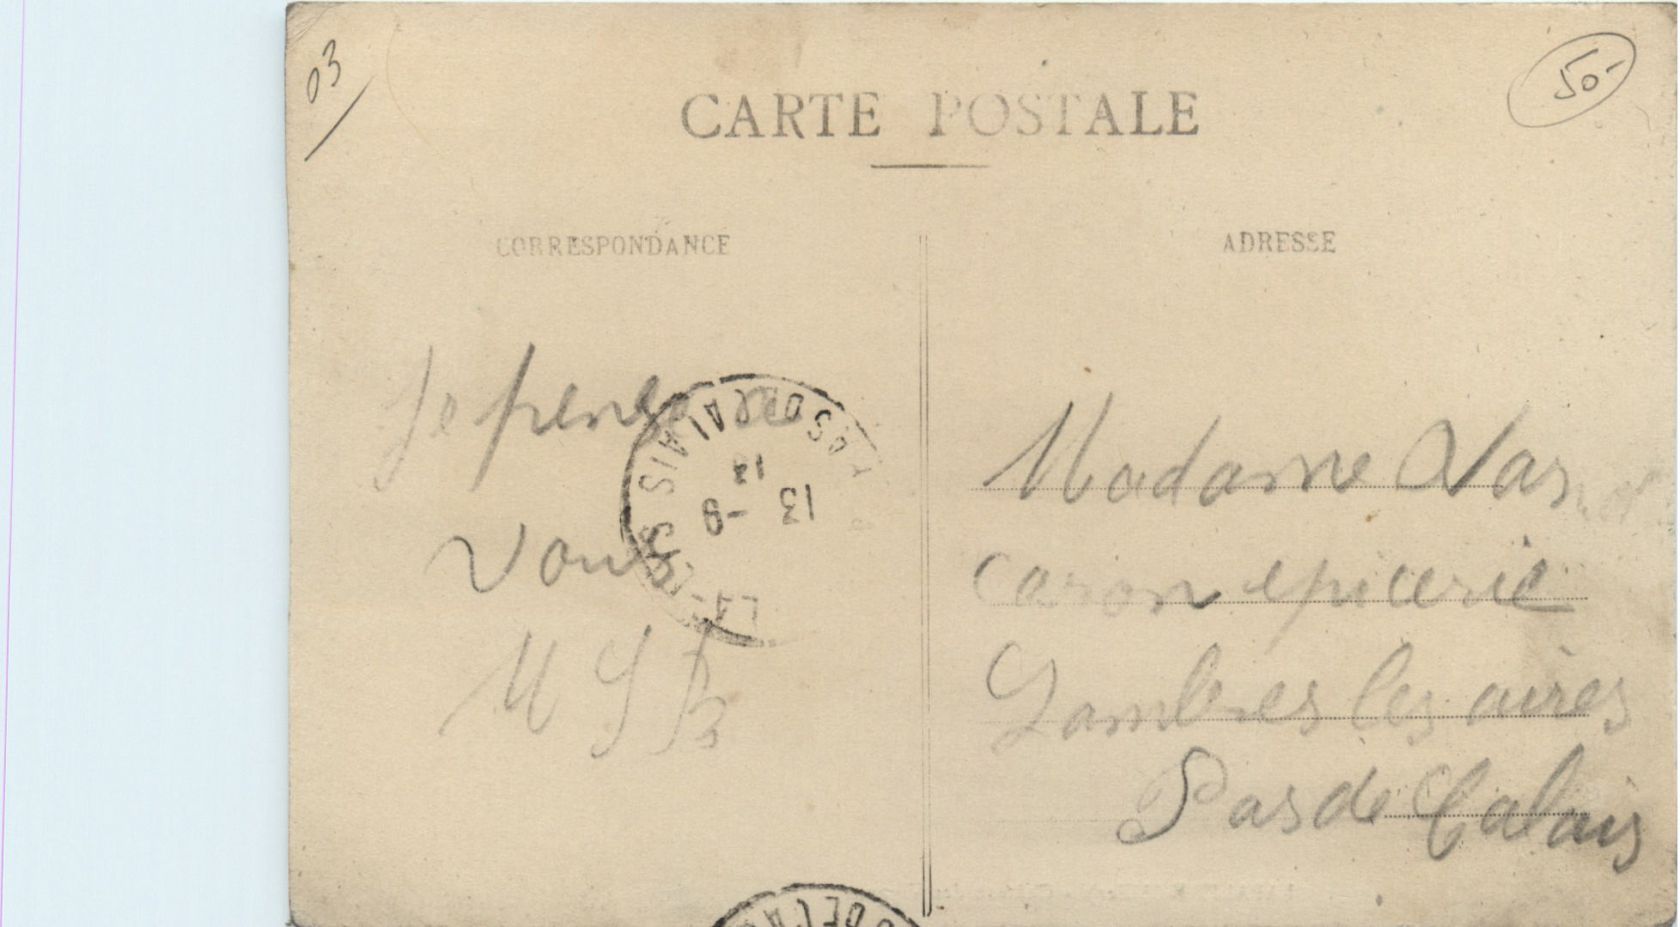 03
50-
CARTE POSTALE
CORRESPONDANCE
ADRESSE
Je pense a
vous
M J B
PAS DE CALAIS
13
13 -9
Madame
caron epicerie
Lambres les aires
Pas de Calais
DE CA